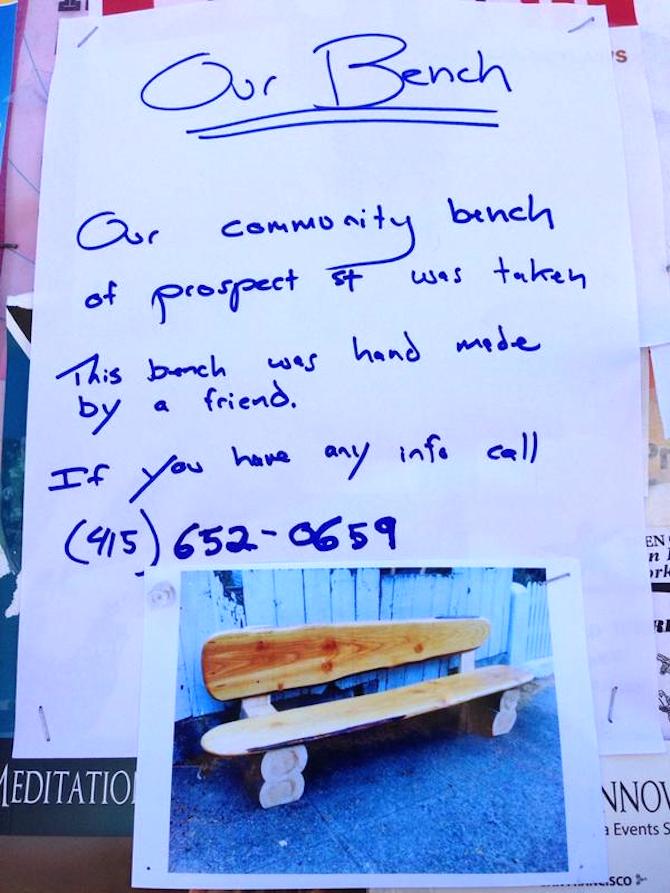 Our Bench
Our community bench
of prospect st was taken
This bench was hand made
by a friend.
If you have any info call
(415) 652-0659
MEDITATIO
NNOV
a Events S